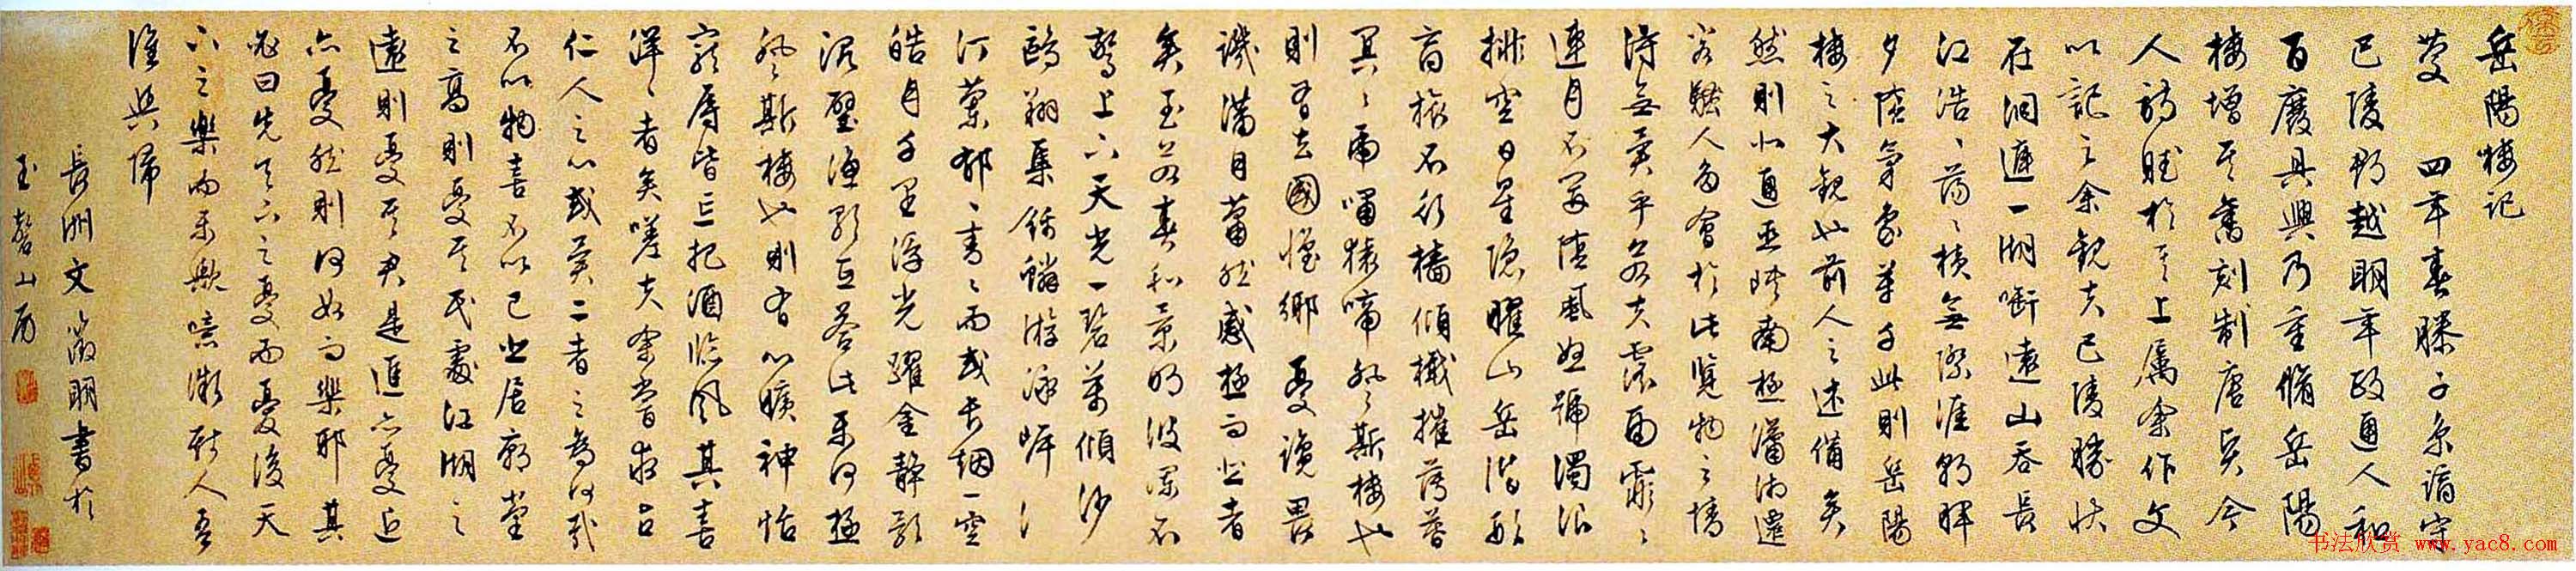 岳陽樓記
慶 四年春滕子京謫守
巴陵郡越明年政通人和
百廢具興乃重脩岳陽
樓增其舊刻制唐賢今
人詩賦於其上屬余作文
以記之余觀夫巴陵勝狀
在洞庭一湖銜遠山吞長
江浩々蕩々橫無際涯朝暉
夕陰氣象萬千此則岳陽
樓之大觀也前人之述備矣
然則北通巫峽南極瀟湘遷
客騷人多會於此覽物之情
得無異乎若夫霪雨霏々
連月不開陰風怒號濁浪
排空日星隱曜山岳潛形
商旅不行檣傾檝摧薄暮
冥々虎嘯猿啼登斯樓也
則有去國懷鄉憂讒畏
譏滿目蕭然感極而悲者
矣至若春和景明波瀾不
驚上下天光一碧萬傾沙
鷗翔集錦鱗游泳岸
汀蘭郁々青々而或長烟一空
皓月千里浮光躍金靜影
沉璧漁歌互答此樂何極
登斯樓也則有心曠神怡
寵辱皆忘把酒臨風其喜
洋々者矣嗟夫余嘗求古
仁人之心或異二者之為何哉
不以物喜不以己悲居廟堂
之高則憂其民處江湖之
遠則憂其君是進亦憂退
亦憂然則何如而樂邪其
必曰先天下之憂而憂後天
下之樂而樂歟噫微斯人吾
誰與歸
長洲文徵明書於
玉磬山房
书法欣赏 www.yac8.com